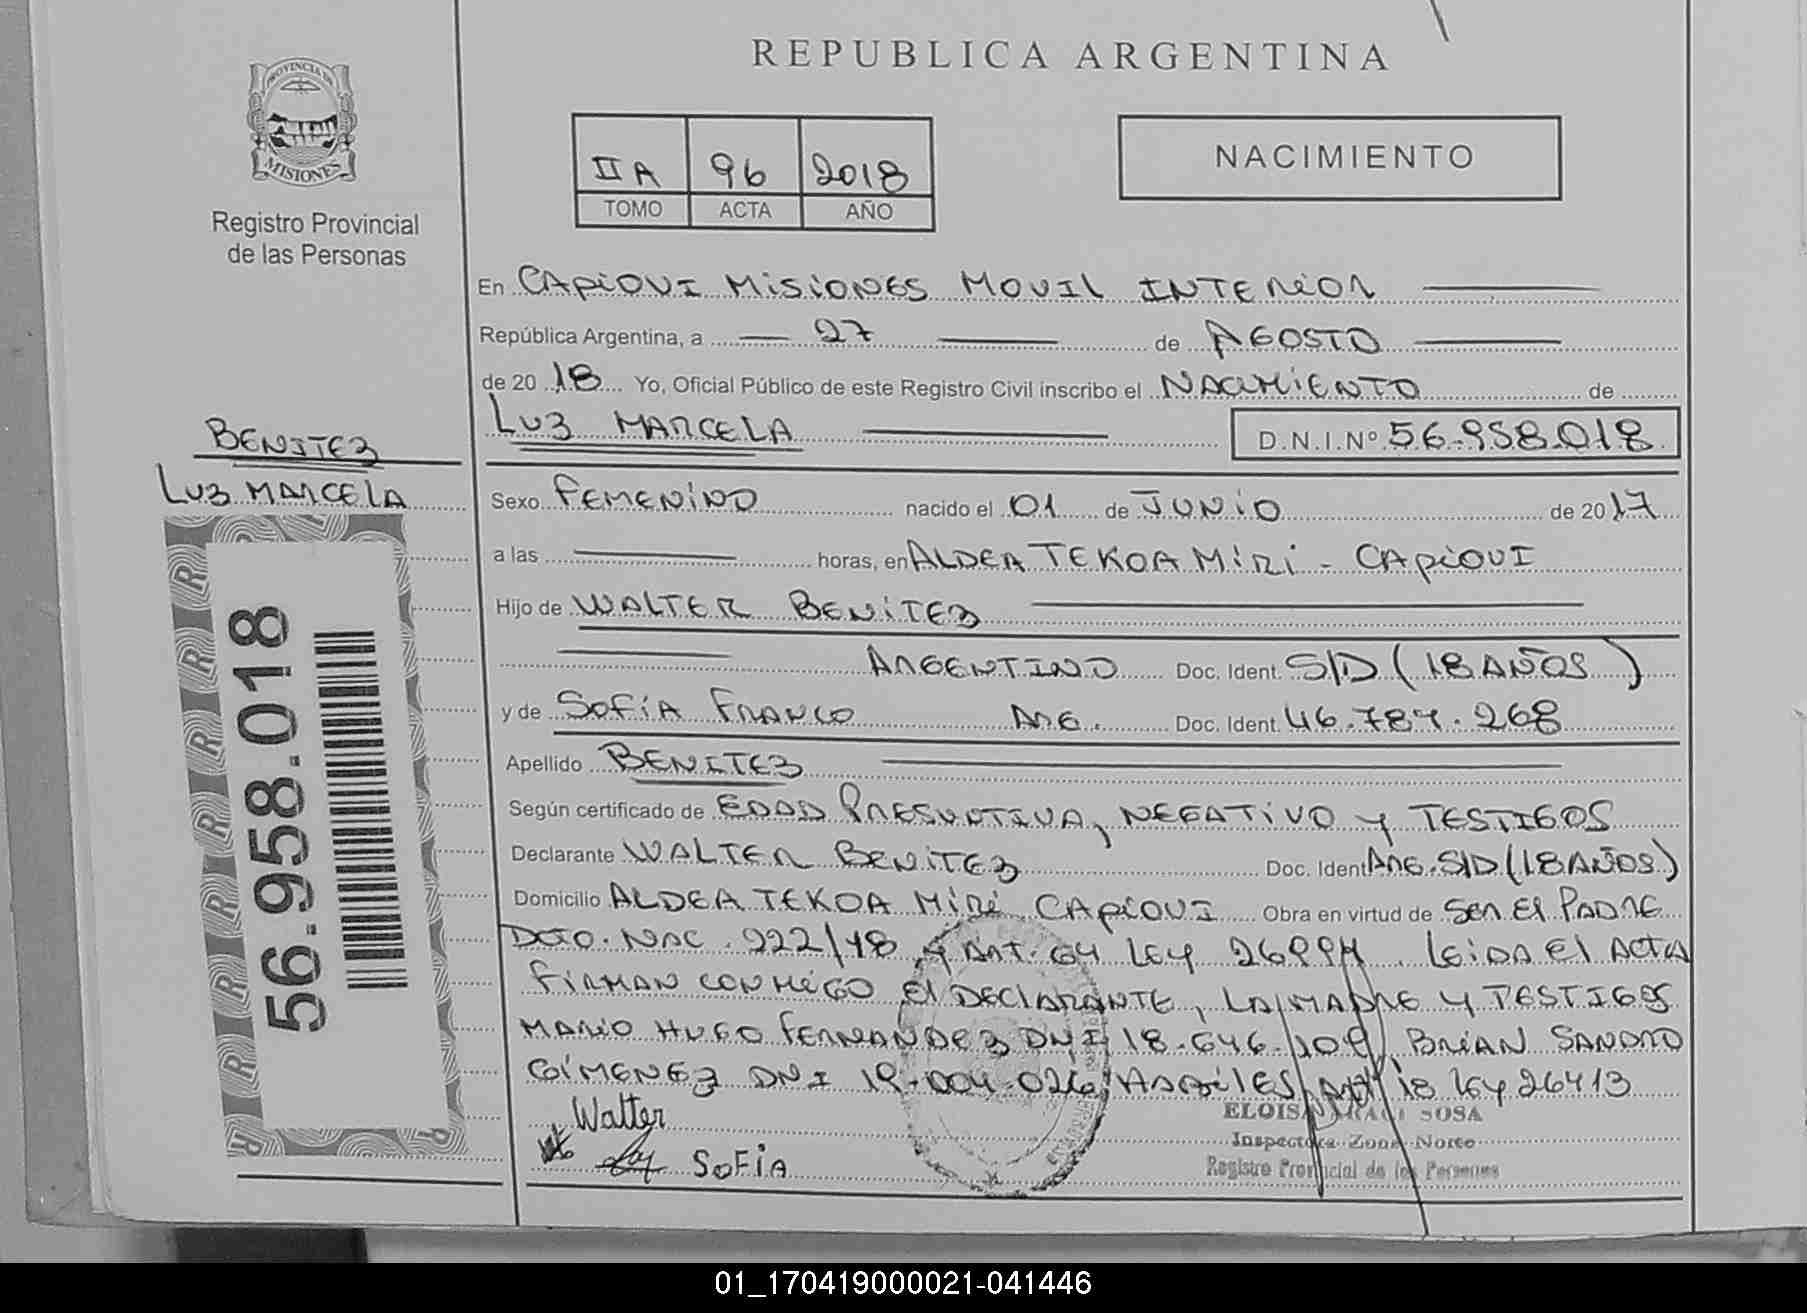 REPUBLICA ARGENTINA
PROVINCIA DE
MISIONES
Registro Provincial
de las Personas
II A 96 2018
TOMO ACTA AÑO
NACIMIENTO
En CAPIOVI MISIONES MOVIL INTERIOR
República Argentina, a 27 de AGOSTO
de 20 18 Yo, Oficial Público de este Registro Civil inscribo el NACIMIENTO de
LUZ MARCELA D.N.I.Nº 56.958.018
BENITEZ
LUZ MARCELA
56.958.018
Sexo FEMENINO nacido el 01 de JUNIO de 2017
a las horas, en ALDEA TEKOA MIRI - CAPIOVI
Hijo de WALTER BENITEZ
ARGENTINO Doc. Ident. S/D (18 AÑOS)
y de SOFIA FRANCO ARG. Doc. Ident. 46.787.268
Apellido BENITEZ
Según certificado de EDAD PRESUNTIVA, NEGATIVO Y TESTIGOS
Declarante WALTER BENITEZ Doc. Ident ARG. S/D (18 AÑOS)
Domicilio ALDEA TEKOA MIRI CAPIOVI Obra en virtud de SER EL PADRE
DCTO. NAC. 222/18 Y ART. 64 LEY 26994. LEIDA EL ACTA
FIRMAN CONMIGO EL DECLARANTE, LA MADRE Y TESTIGOS
MARIO HUGO FERNANDEZ DNI 18.646. BRIAN SANDRO
GIMENEZ DNI 19.004.026 ART 18 LEY 26413
Walter
SOFIA
ELOISA SOSA
Inspectora Zona Norte
Registro Provincial de las Personas
01_170419000021-041446